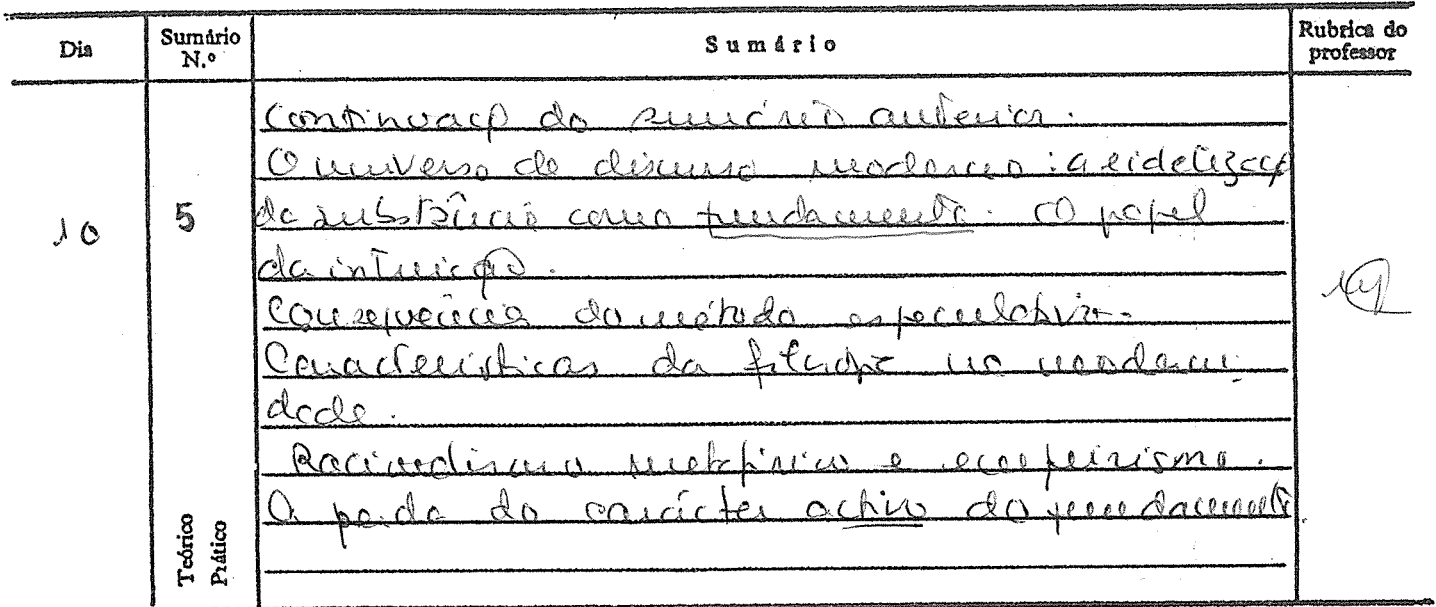 Dia
Sumário N.º
Sumário
Rubrica do professor
10
5
Continuação do sumário anterior.
O universo de discurso moderno: a eidetização
da substância como fundamento. O papel
da intuição.
Consequências do método especulativo.
Características da filosofia na moderni
dade.
Racionalismo metafísico e o empirismo.
A perda do carácter activo do fundamento
Teórico
Prático